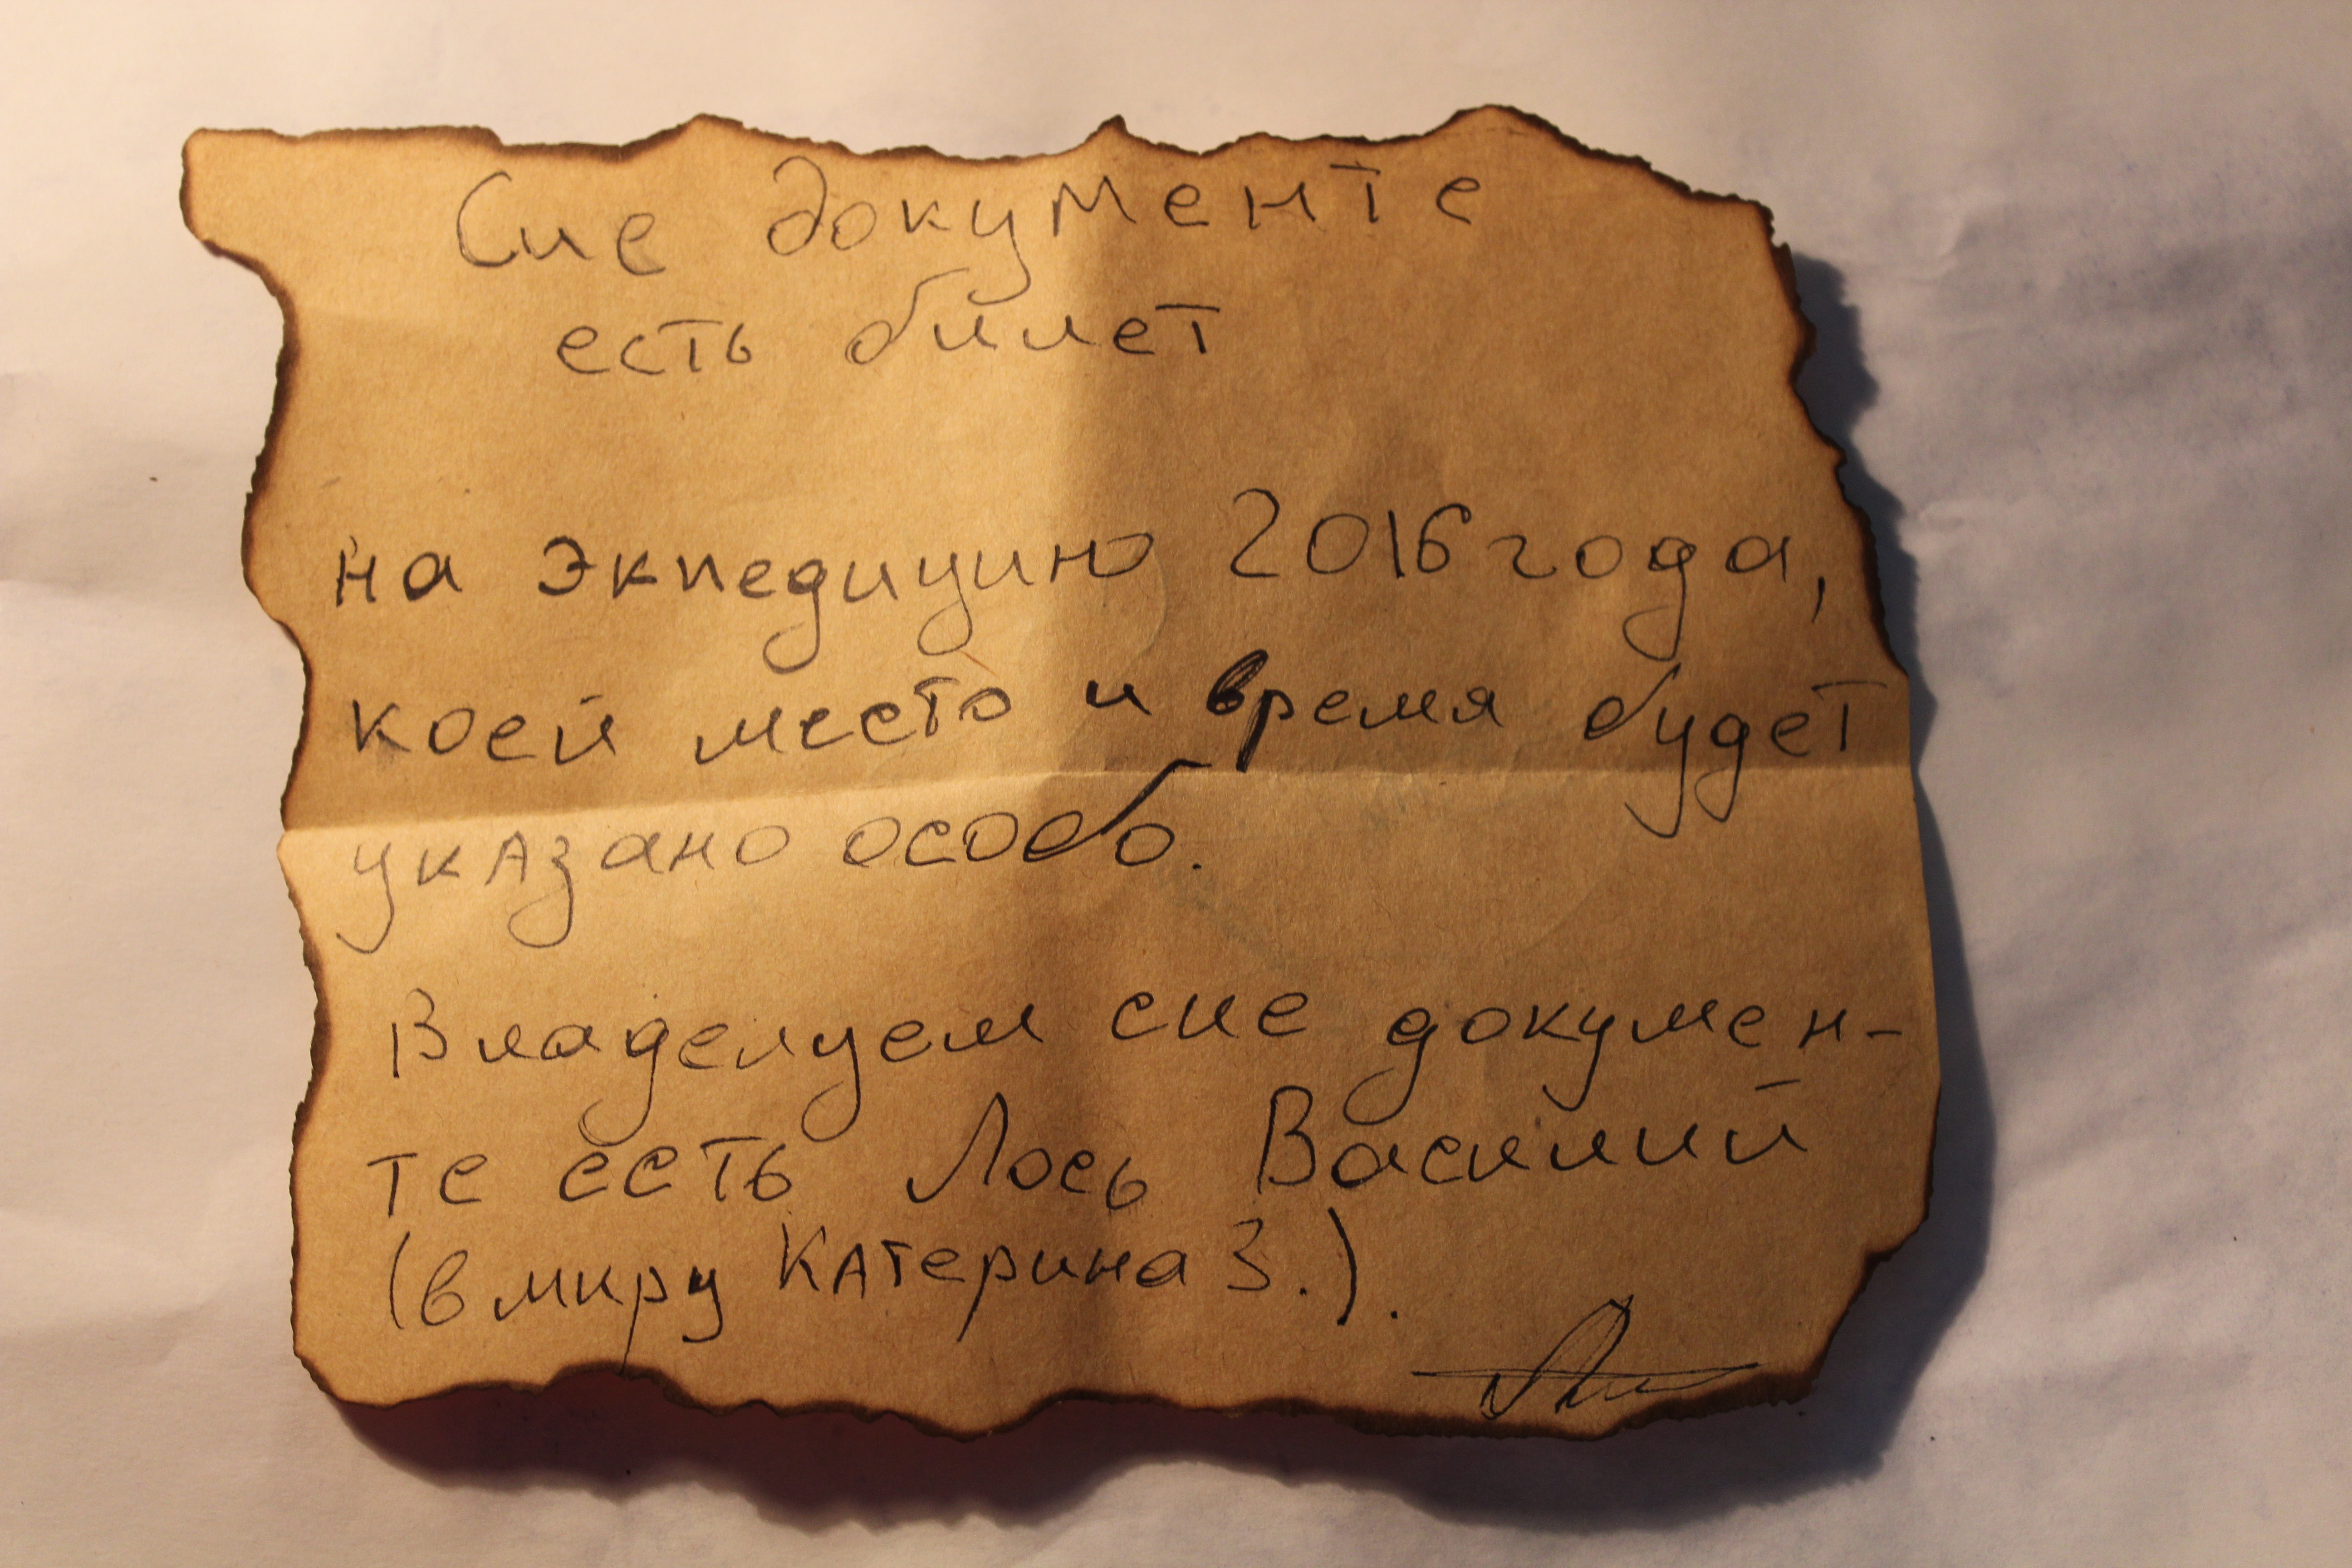 Сие документе
есть билет
на экпедицию 2016 года,
коей место и время будет
указано особо.
Владелуем сие докумен-
те есть Лось Василий
(в миру Катерина З.).